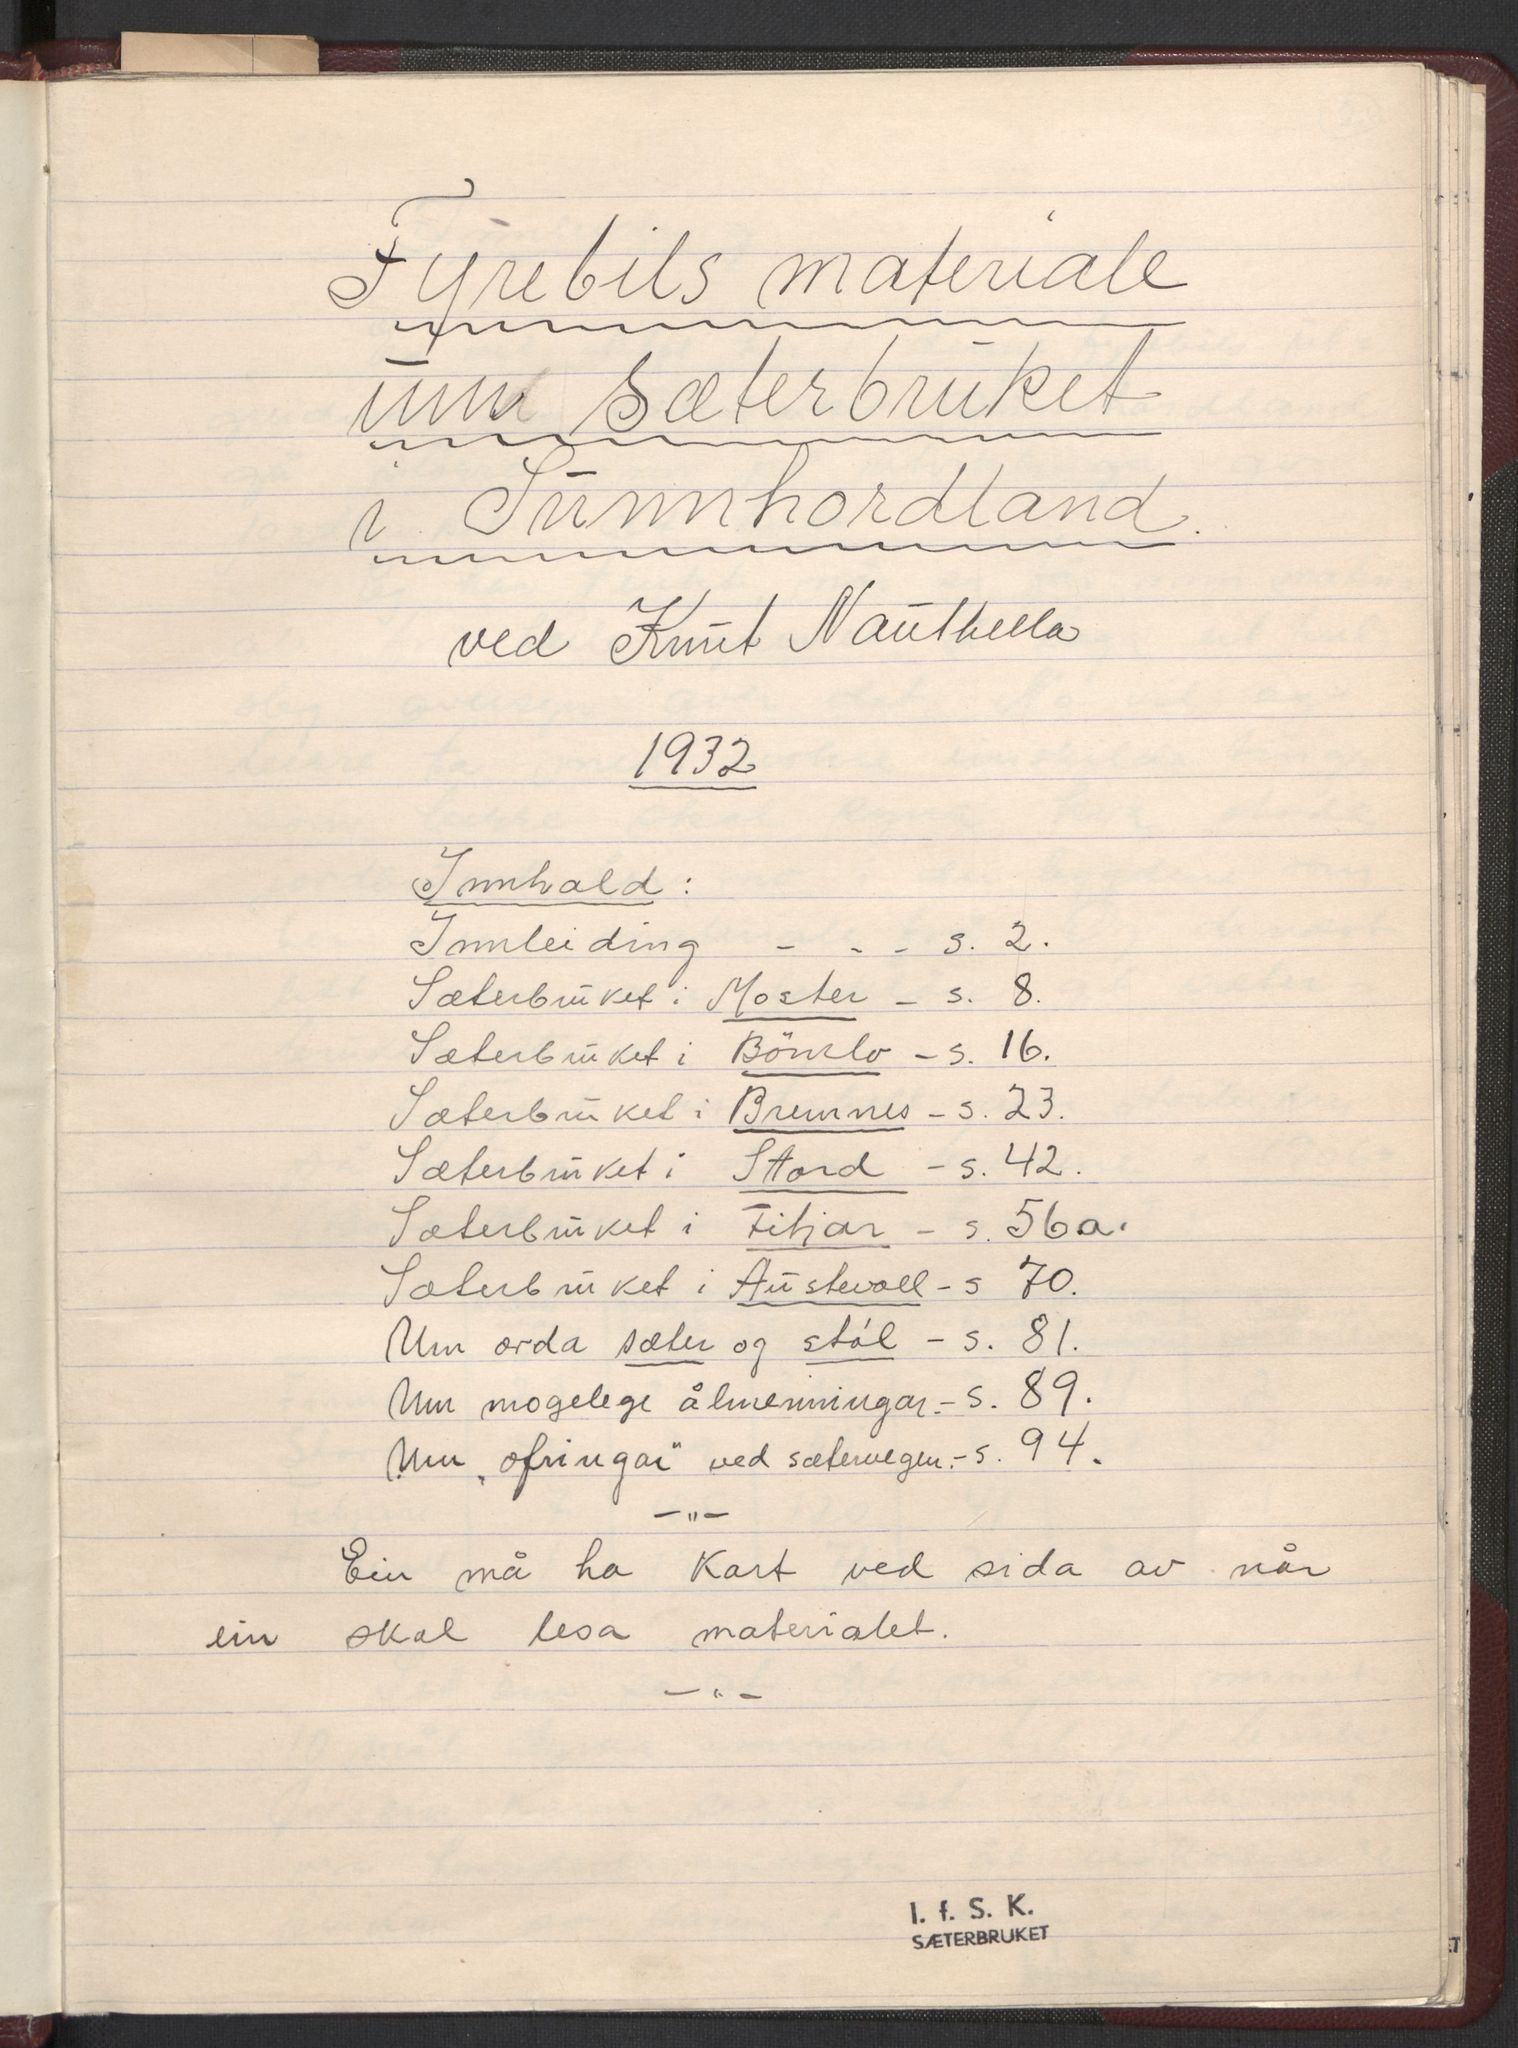 Fyrebils materiale
um sæterbruket
i Sunnhordland.
ved Knut Nauthella
1932
Innhald:
Innleiding - - - s. 2.
Sæterbruket i Moster - s. 8.
Sæterbruket i Bömlo - s. 16.
Sæterbruket i Bremnes - s. 23.
Sæterbruket i Stord - s. 42.
Sæterbruket i Fitjar - s. 56a.
Sæterbruket i Austevoll - s 70.
Um orda sæter og stól - s. 81.
Um mogelege ålmenningar. - s. 89.
Um „ofringar" ved sætervegen. - s. 94.
—"—
Ein må ha kart ved sida av når
ein skal lesa materialet.
—"—
I. f. S. K.
SÆTERBRUKET